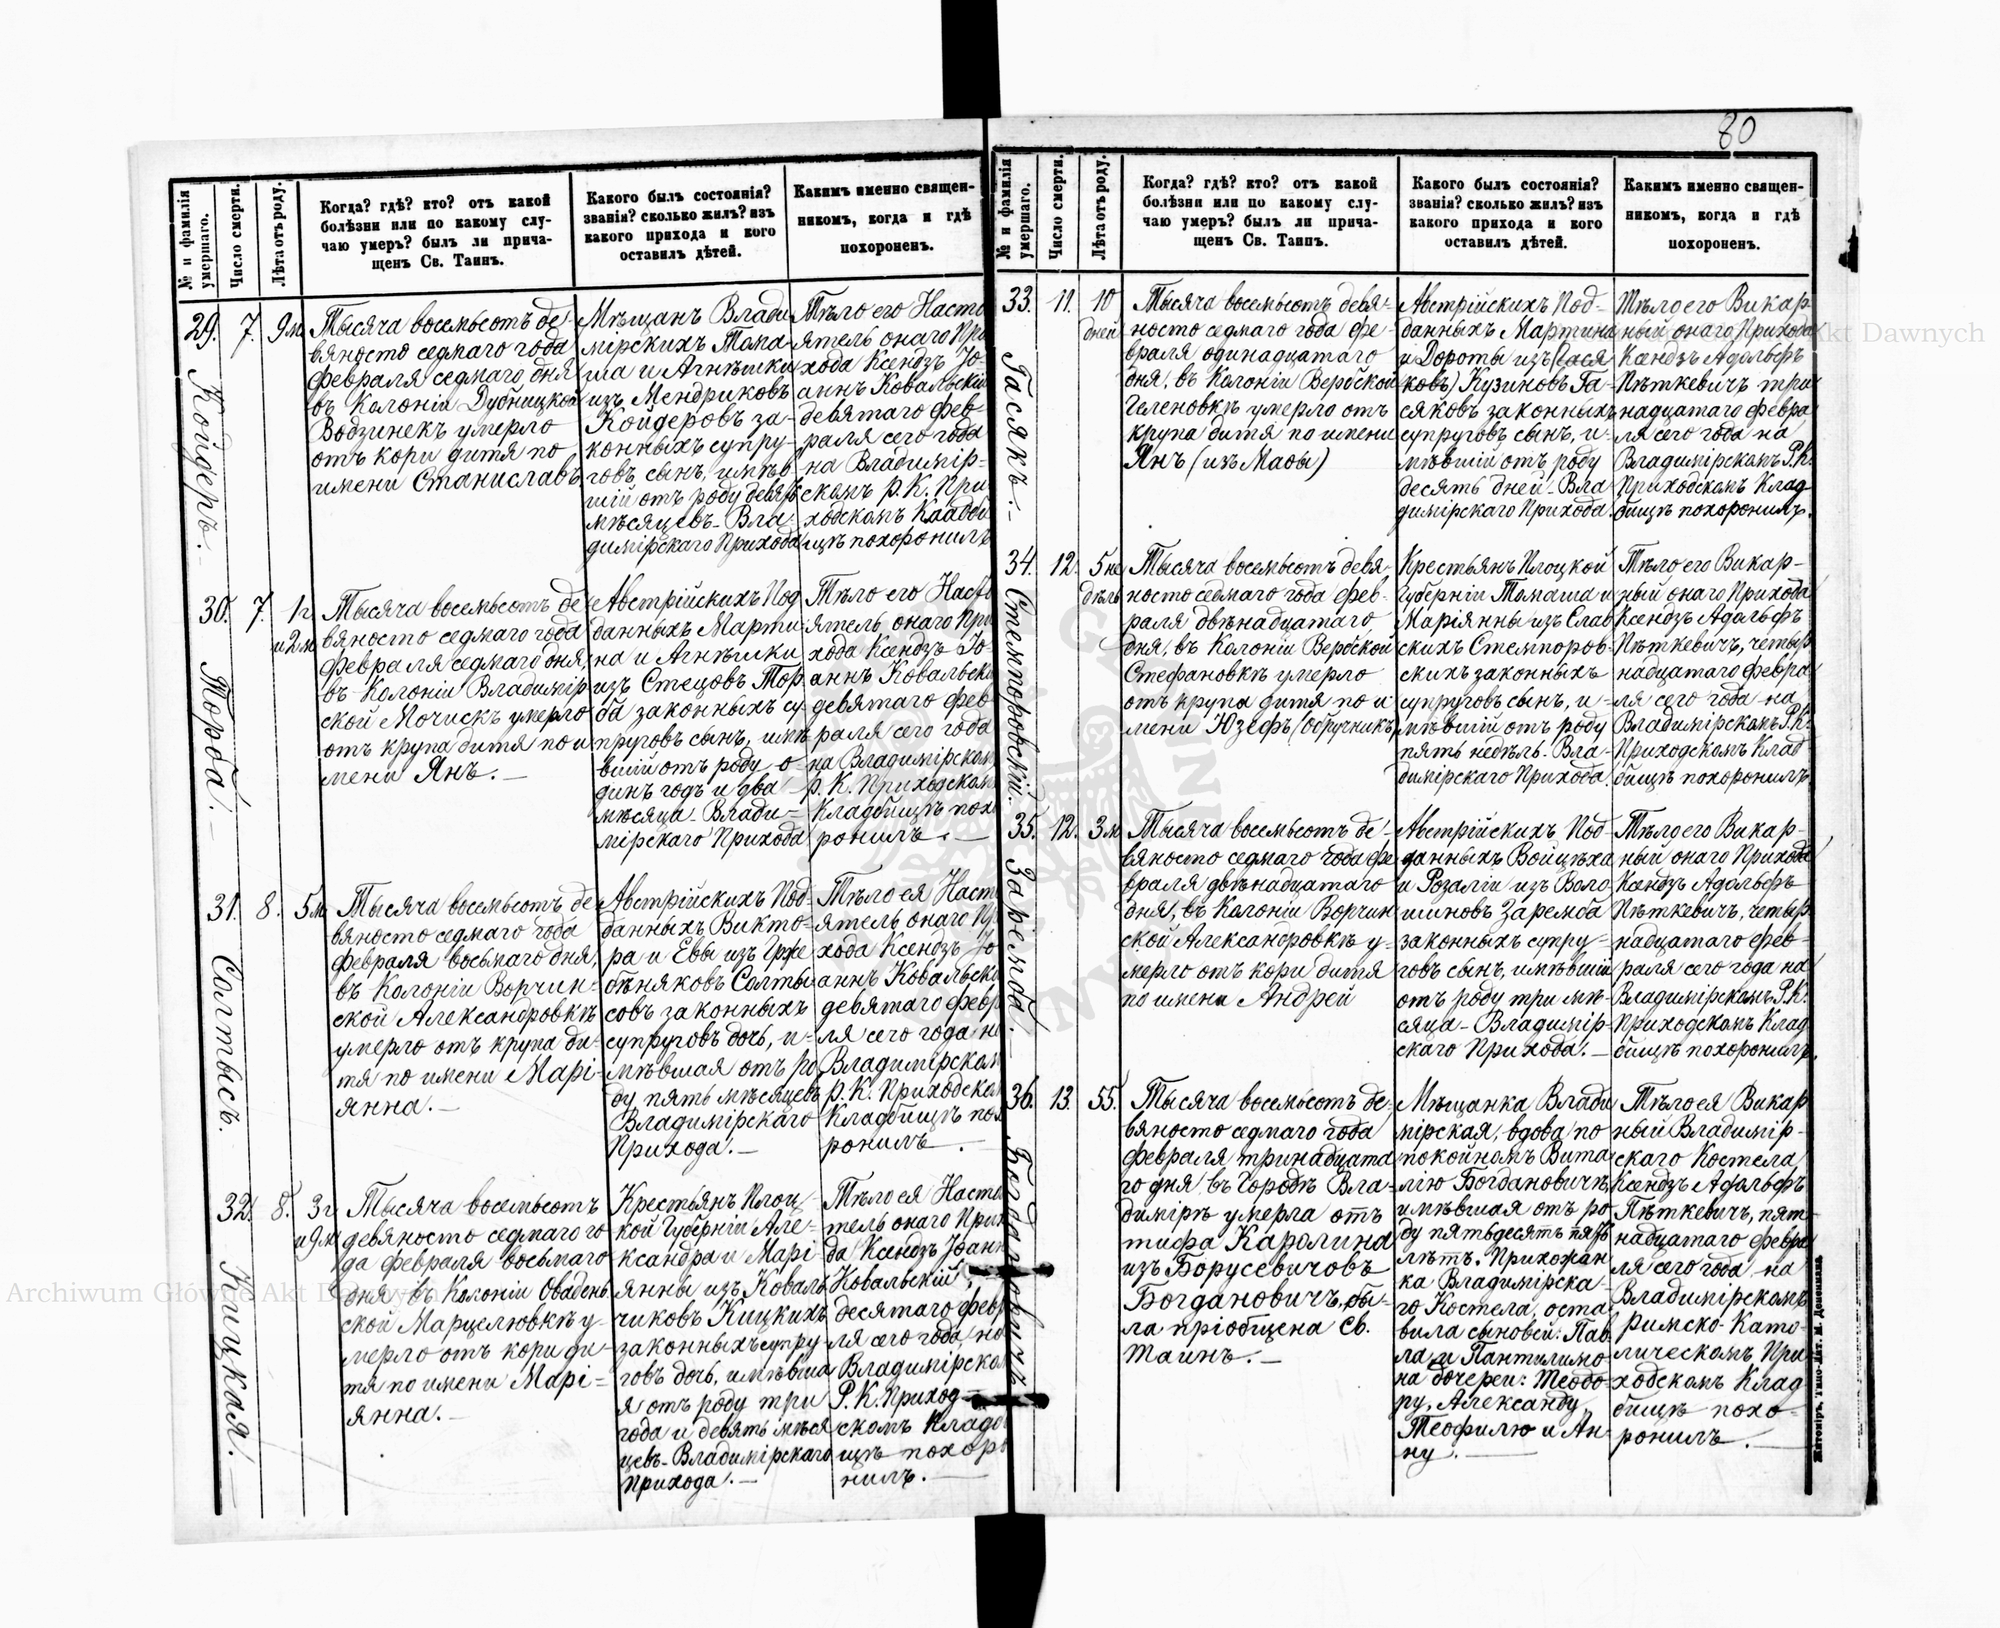 80
№ и фамилія умершаго.
Число смерти.
Лѣта отъ роду.
Когда? гдѣ? кто? отъ какой
болѣзни или по какому слу-
чаю умеръ? былъ ли прича-
щенъ Св. Таинъ.
Какого былъ состоянія?
званія? сколько жилъ? изъ
какого прихода и кого
оставилъ дѣтей.
Каким именно священ-
никомъ, когда и гдѣ
похороненъ.
29.
Койдеръ.
7.
9м
Тысяча восемьсотъ де-
вяносто седмаго года
февраля седмаго дня
въ Колоніи Дубницкой
Водзинекъ умерло
отъ кори дитя по
имени Станиславъ
Мѣщанъ Влади
мірскихъ Тома-
ша и Агнѣшки
изъ Мендриковъ
Койдеровъ за-
конныхъ супру-
говъ сынъ, имѣв
шій отъ роду девять
мѣсяцевъ - Вла-
димірскаго Прихода
Тѣло его Насто
ятель онаго При
хода Ксендзъ Іо-
аннъ Ковальскій
девятаго фев-
раля сего года
на Владимір-
скомъ Р. К. При
ходскомъ Кладби
щѣ похоронилъ
30.
Торба.
7.
1г.
и 2м
Тысяча восемьсотъ де
вяносто седмаго года
февраля седмаго дня,
въ Колоніи Владимір
ской Мочискъ умерло
отъ крупа дитя по и
мени Янъ.
Австрійскихъ Под
данныхъ Марти-
на и Агнѣшки
изъ Стецовъ Тор
ба законныхъ су-
пруговъ сынъ, имѣ
вшій отъ роду о-
динъ годъ и два
мѣсяца - Влади-
мірскаго Прихода
Тѣло его Насто
ятель онаго При
хода Ксендзъ Іо-
аннъ Ковальск
девятаго фев
раля сего года
на Владимірском
Р. К. Приходском
Кладбищѣ похо
ронилъ.
31.
Солтысъ.
8.
5м.
Тысяча восемьсотъ де
вяносто седмаго года
февраля восьмаго дня,
въ Колоніи Ворчин-
ской Александровкѣ
умерло отъ крупа ди-
тя по имени Марі-
янна.
Австрійскихъ Под-
данныхъ Викто-
ра и Евы изъ Грже
бѣняковъ Солты
совъ законныхъ
супруговъ дочь, и-
мѣвшая отъ ро
ду пять мѣсяцевъ
Владимірскаго
Прихода.
Тѣло ея Насто
ятель онаго Пр
хода Ксендзъ Іо
аннъ Ковальск
девятаго февр
ля сего года на
Владимірском
Р. К. Приходском
Кладбищѣ пох
ронилъ
32.
Кицкая.
8.
3г
и 9м
Тысяча восемьсотъ
девяносто седмаго го
да февраля восьмаго
дня въ Колоніи Оваден
ской Марцелювкѣ у-
мерло отъ кори ди-
тя по имени Марі-
янна.
Крестьянъ Плоц-
кой Губерніи Але-
ксандра и Марі-
янны изъ Коваль
чиковъ Кицкихъ
законныхъ супру-
говъ дочь, имѣвша
я отъ роду три
года и девять мѣся
цевъ - Владимірскаго
Прихода.
Тѣло ея Насто
тель онаго Прих
да Ксендзъ Іоанн
Ковальскій,
десятаго февр
ля сего года, на
Владимірском
Р. К. Приход-
скомъ Кладб
щѣ похоро
нилъ.
№ и фамилія умершаго.
Число смерти.
Лѣта отъ роду.
Когда? гдѣ? кто? отъ какой
болѣзни или по какому слу-
чаю умеръ? былъ ли прича-
щенъ Св. Таинъ.
Какого былъ состоянія?
званія? сколько жилъ? изъ
какого прихода и кого
оставилъ дѣтей.
Какимъ именно священ-
никомъ, когда и гдѣ
похороненъ.
33.
Гасякъ.
11.
10
дней
Тысяча восемьсотъ девя-
носто седмаго года фе-
враля одинадцатаго
дня, въ Колоніи Вербской
Геленовкѣ умерло отъ
крупа дитя по имени
Янъ (изъ Маоы)
Австрійскихъ Под-
данныхъ Мартина
и Дороты изъ (Гася
ковъ) Кузиновъ Га-
сяковъ законныхъ
супруговъ сынъ, и-
мѣвшій отъ роду
десять дней - Вла
димірскаго Прихода.
Тѣло его Викар-
ный онаго Прихода
Ксендзъ Адольфъ
Пѣткевичъ три
надцатаго февра
ля сего года на
Владимірскомъ Р. К.
Приходскомъ Клад
бищѣ похоронилъ.
34.
Стемпоровскій.
12.
5 не
дѣль
Тысяча восемьсотъ девя-
носто седмаго года фев-
раля двѣнадцатаго
дня, въ Колоніи Вербской
Стефановкѣ умерло
отъ крупа дитя по и
мени Юзефъ (Обручникъ)
Крестьянъ Плоцкой
Губерніи Томаша и
Маріянны изъ Слав
скихъ Стемпоров-
скихъ законныхъ
супруговъ сынъ, и-
мѣвшій отъ роду
пять недѣль - Вла-
димірскаго Прихода.
Тѣло его Викар-
ный онаго Прихода
Ксендзъ Адольфъ
Пѣткевичъ, четыр
надцатаго февра
ля сего года на
Владимірскомъ Р. К.
Приходскомъ Клад
бищѣ похоронилъ.
35.
Заремба.
12.
3м
Тысяча восемьсотъ де-
вяносто седмаго года фе
враля двѣнадцатаго
дня, въ Колоніи Ворчин
ской Александровкѣ у-
мерло отъ кори дитя
по имени Андрей
Австрійскихъ Под-
данныхъ Войцѣха
и Розаліи изъ Воло
шиновъ Заремба
законныхъ супру-
говъ сынъ, имѣвшій
отъ роду три мѣ-
сяца - Владимір-
скаго Прихода.
Тѣло его Викар-
ный онаго Прихода
Ксендзъ Адольфъ
Пѣткевичъ, четыр
надцатаго фев-
раля сего года на
Владимірскомъ Р. К.
Приходскомъ Клад
бищѣ похоронилъ.
36.
Богдановичъ
13.
55.
Тысяча восемьсотъ де-
вяносто седмаго года
февраля тринадцата
го дня въ Городѣ Вла-
димірѣ умерла отъ
тифа Каролина
изъ Борусевичовъ
Богдановичъ, бы-
ла пріобщена Св.
Таинъ.
Мѣщанка Влади
мірская, вдова по
покойномъ Вита
лію Богдановичѣ,
имѣвшая отъ ро-
ду пятьдесятъ пять
лѣтъ. Прихожан
ка Владимірска-
го Костела, оста
вила сыновей: Пав
ла и Пантилимо
на дочерей: Теодо-
ру, Александу,
Теофилю и Ан-
ну.
Тѣло ея Викар
ный Владимір-
скаго Костела
Ксендзъ Адольфъ
Пѣткевичъ, пят
надцатаго февра
ля сего года на
Владимірскомъ
Римско-Като-
лическомъ При
ходскомъ Клад
бищѣ похо-
ронилъ.
Житоміръ. Типо-Лит. М. Дененмана.
Archiwum Główne Akt Dawnych
Akt Dawnych